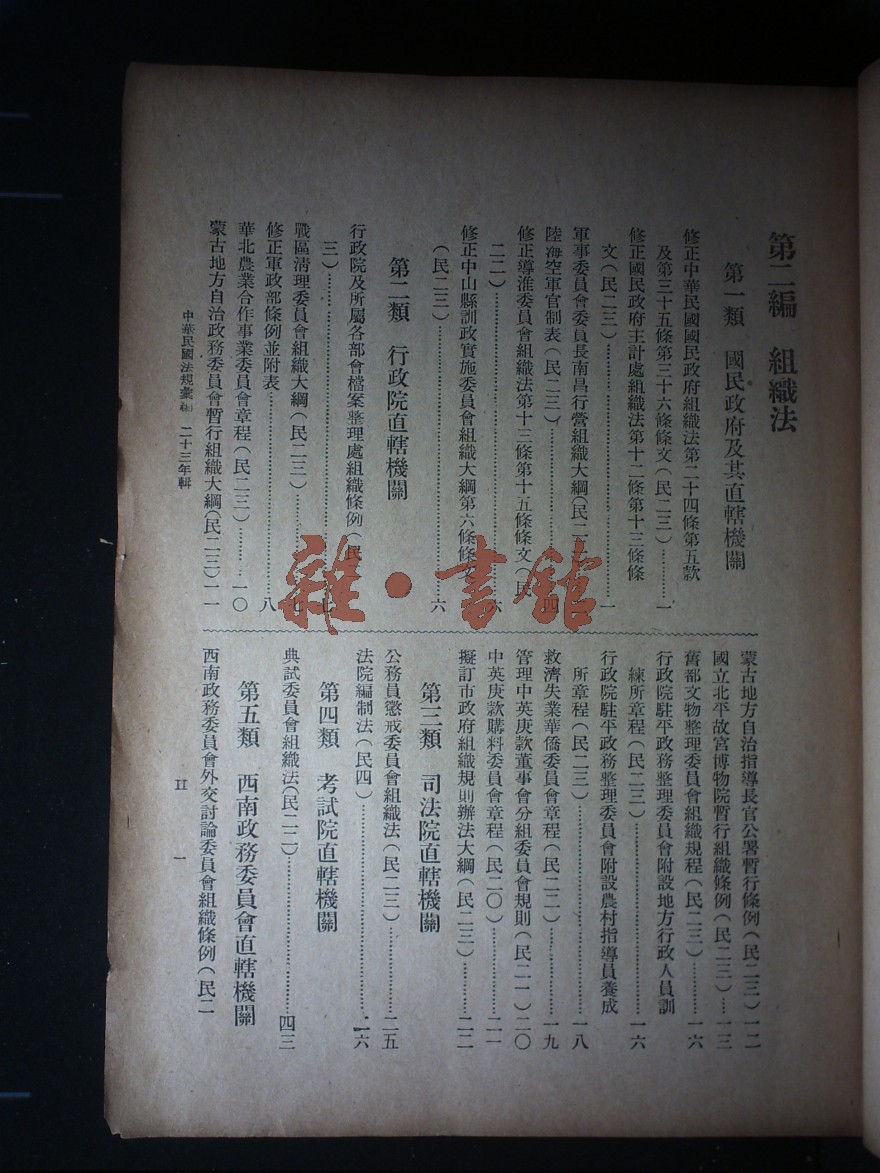 第二編　組織法
第一類　國民政府及其直轄機關
修正中華民國國民政府組織法第二十四條第五款
及第三十五條第三十六條條文(民二三)………一
修正國民政府主計處組織法第十二條第十三條條
文(民二三)………一
軍事委員會委員長南昌行營組織大綱(民二
陸海空軍官制表(民二三)………四
修正導淮委員會組織法第十三條第十五條條文(民
二二)………六
修正中山縣訓政實施委員會組織大綱第六條條文
(民二三)………六
第二類　行政院直轄機關
行政院及所屬各部會檔案整理處組織條例(民
三)………七
戰區清理委員會組織大綱(民二三)………七
修正軍政部條例並附表………八
華北農業合作事業委員會章程(民二三)………一〇
蒙古地方自治政務委員會暫行組織大綱(民二三)一一
蒙古地方自治指導長官公署暫行條例(民二三)一二
國立北平故宮博物院暫行組織條例(民二三)…一三
舊都文物整理委員會組織規程(民二三)………一六
行政院駐平政務整理委員會附設地方行政人員訓
練所章程(民二三)………一六
行政院駐平政務整理委員會附設農村指導員養成
所章程(民二三)………一八
救濟失業華僑委員會章程(民二二)………一九
管理中英庚款董事會分組委員會規則(民二一)二〇
中英庚款購料委員會章程(民二〇)………二一
擬訂市政府組織規則辦法大綱(民二三)………二二
第三類　司法院直轄機關
公務員懲戒委員會組織法(民二三)………二五
法院編制法(民四)………二六
第四類　考試院直轄機關
典試委員會組織法(民二二)………四三
第五類　西南政務委員會直轄機關
西南政務委員會外交討論委員會組織條例(民二
中華民國法規彙編　二十三年輯
II　一
雜·書館